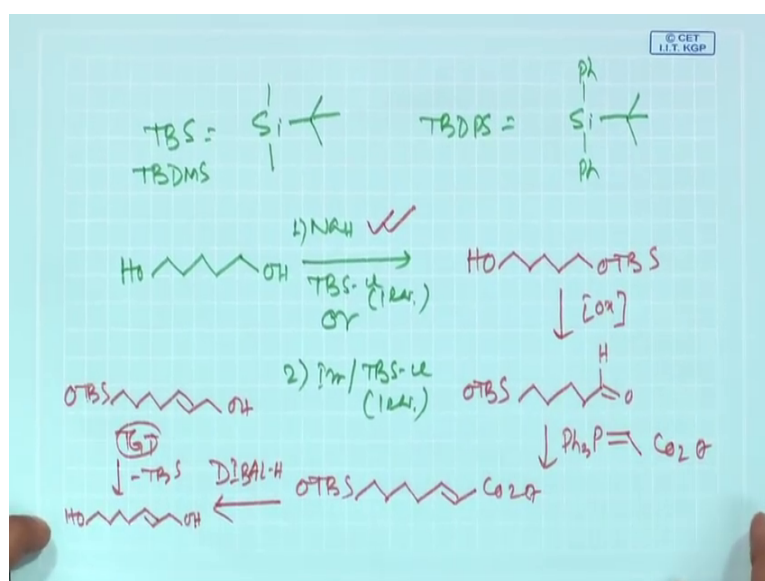 © CET
I.I.T. KGP
TBS =
Si
TBDMS
TBDPS =
Ph
Si
Ph
HO
OH
1) NaH
TBS-Cl (1 eq.)
or
2) Im/TBS-Cl
(1 eq.)
HO
OTBS
[ox]
H
OTBS
O
Ph3P=
CO2
OTBS
CO2
DIBAL-H
OTBS
OH
TGT
-TBS
HO
OH